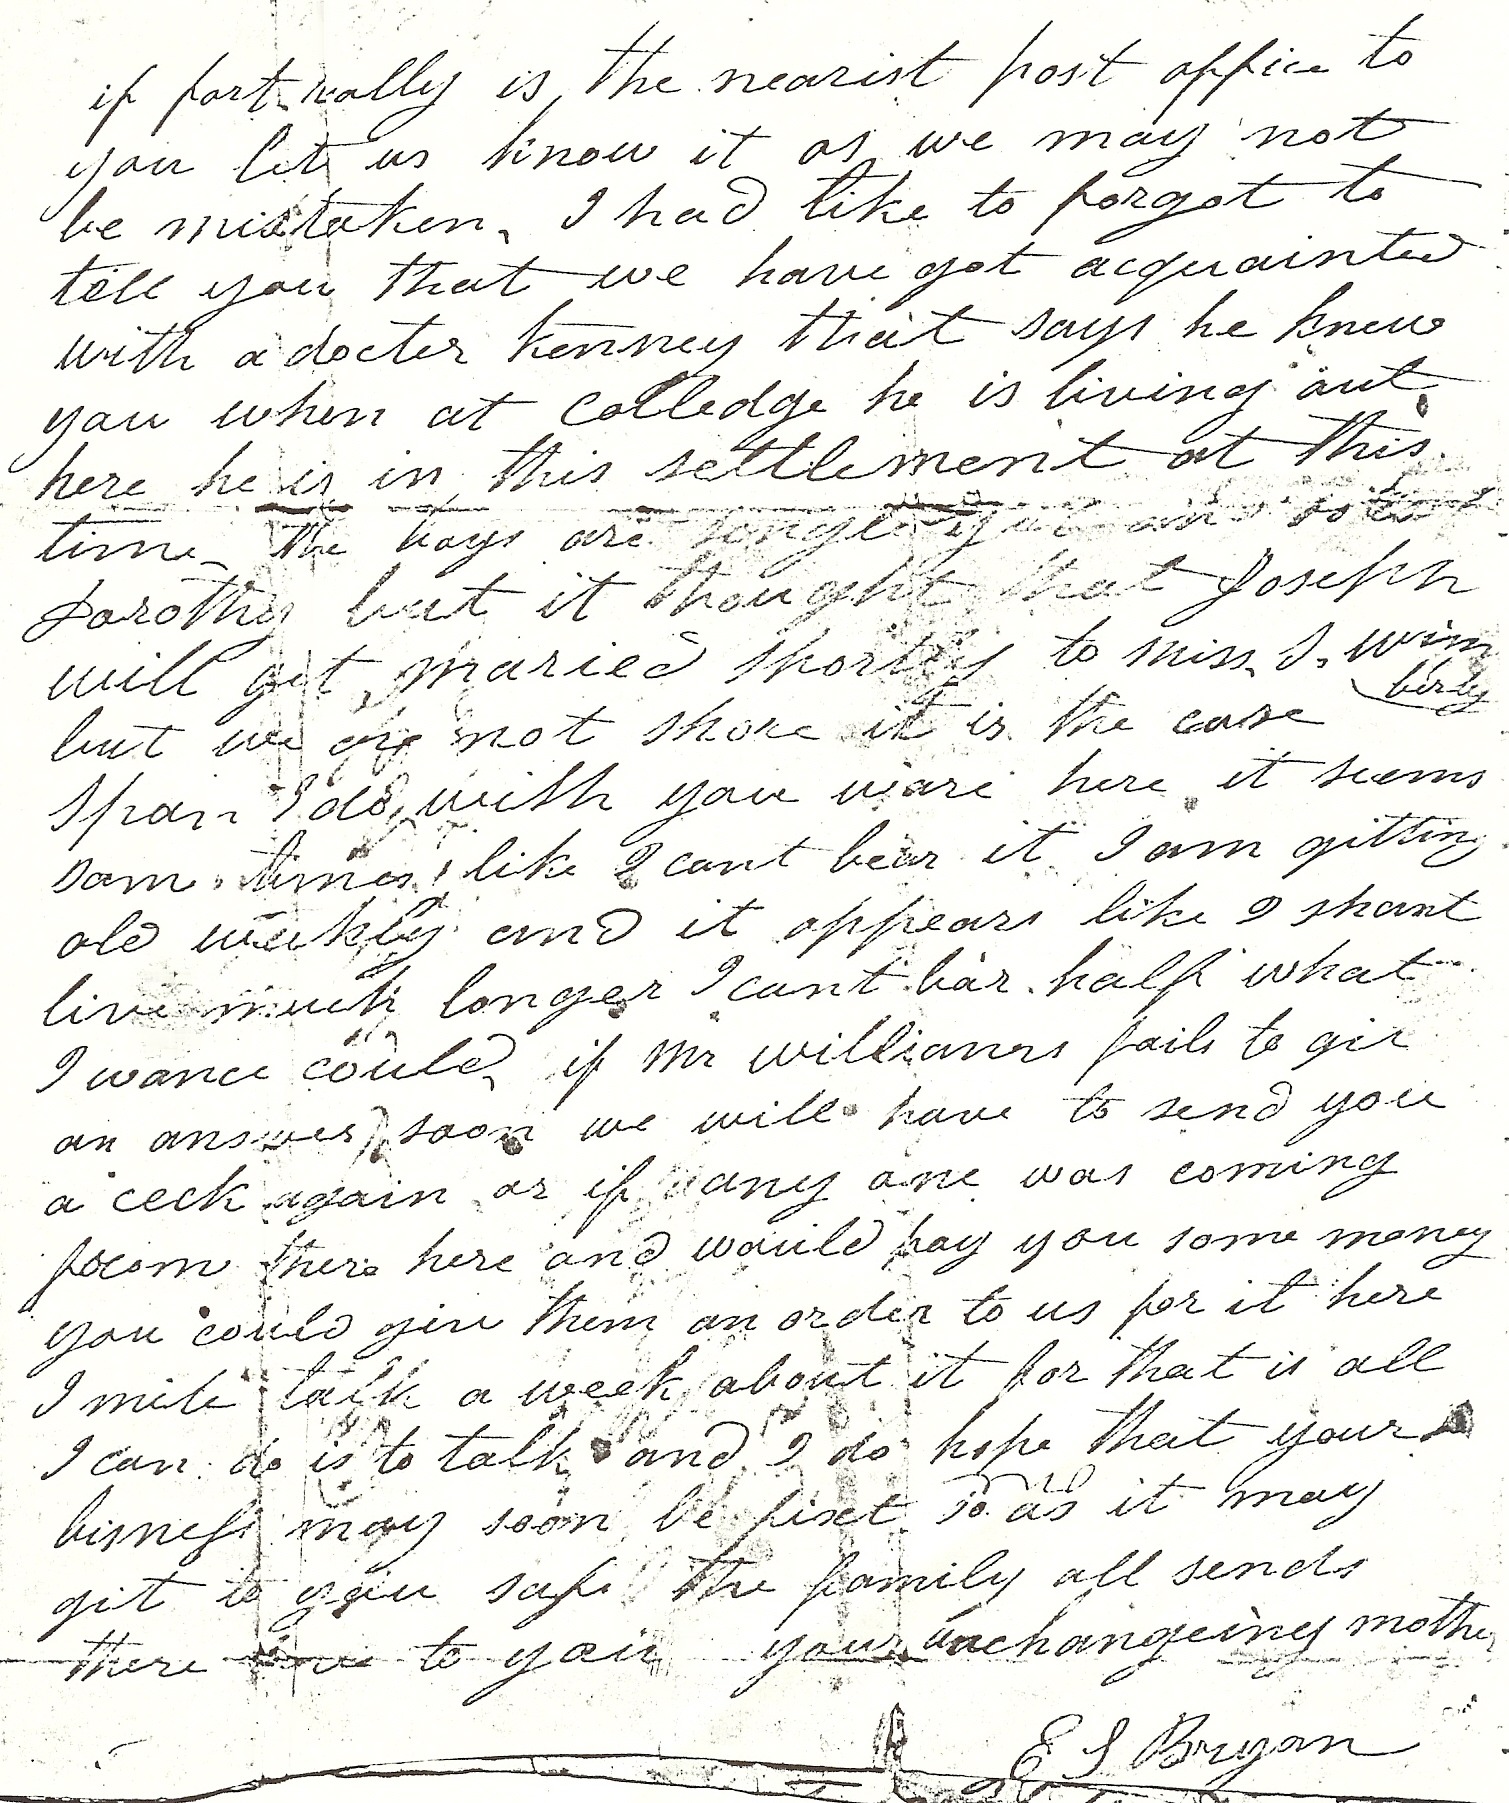 if fort really is the nearist post office to
you let us know it as we may not
be mistaken. I had like to forgot to
tell you that we have got acquainted
with a docter kenney that says he knew
you when at Colledge he is living out
here he is in this settlement at this
time. the boys are single yet and so is
Dorothy but it thought that Joseph
will git maried shortly to miss. S. wim
birly
but we are not shore it is the case
Span I do wish you ware here it seems
som times like I cant bear it I am gitting
old weekly and it appears like I shant
live much longer I cant bar half what
I wance could, if Mr williams fails to git
an answer soon we will have to send you
a ceck again or if aany one was coming
from there here and would pay you some money
you could give them an order to us for it here
I mite talk a week about it for that is all
I can do is to talk and I do hope that your
bisness may soon be fixt so as it may
git to you safe the family all sends
there love to you your unchangeing mother
E S Bryan